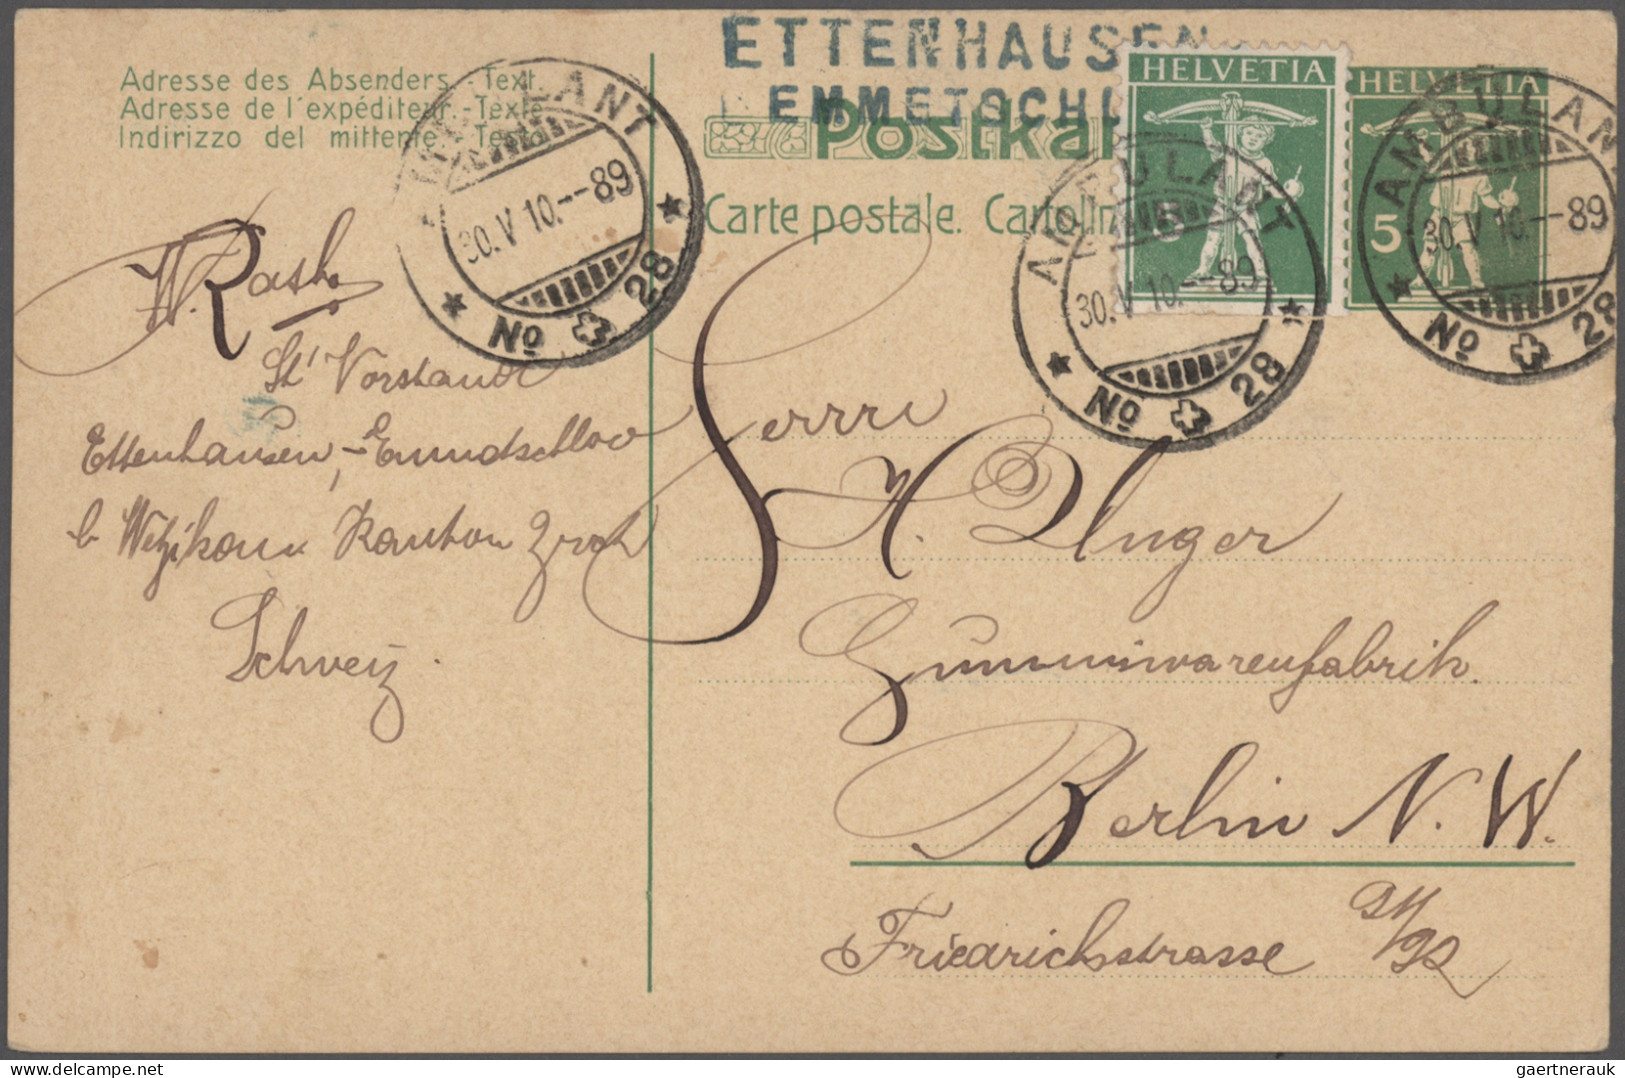 ETTENHAUSEN
EMMETSCHL
Adresse des Absenders.-Text.
Adresse de l'expéditeur.-Texte
Indirizzo del mittente -Testo
Postkar
Carte postale. Cartolin
HELVETIA
5
HELVETIA
5
AMBULANT
30.V 10.--89
No 28
AMBULANT
30.V 10.--89
No 28
AMBULAN
30.V 10.--89
No 28
W.
Stl Vorstand
Ettenhausen,-Emmdschloo
b Wetzikon Kanton Zrch
Schweiz.
Herrn
H. Unger
Gummiwarenfabrik.
Berlin N.W.
Friedrichstrasse 91/92
gaertnerauk